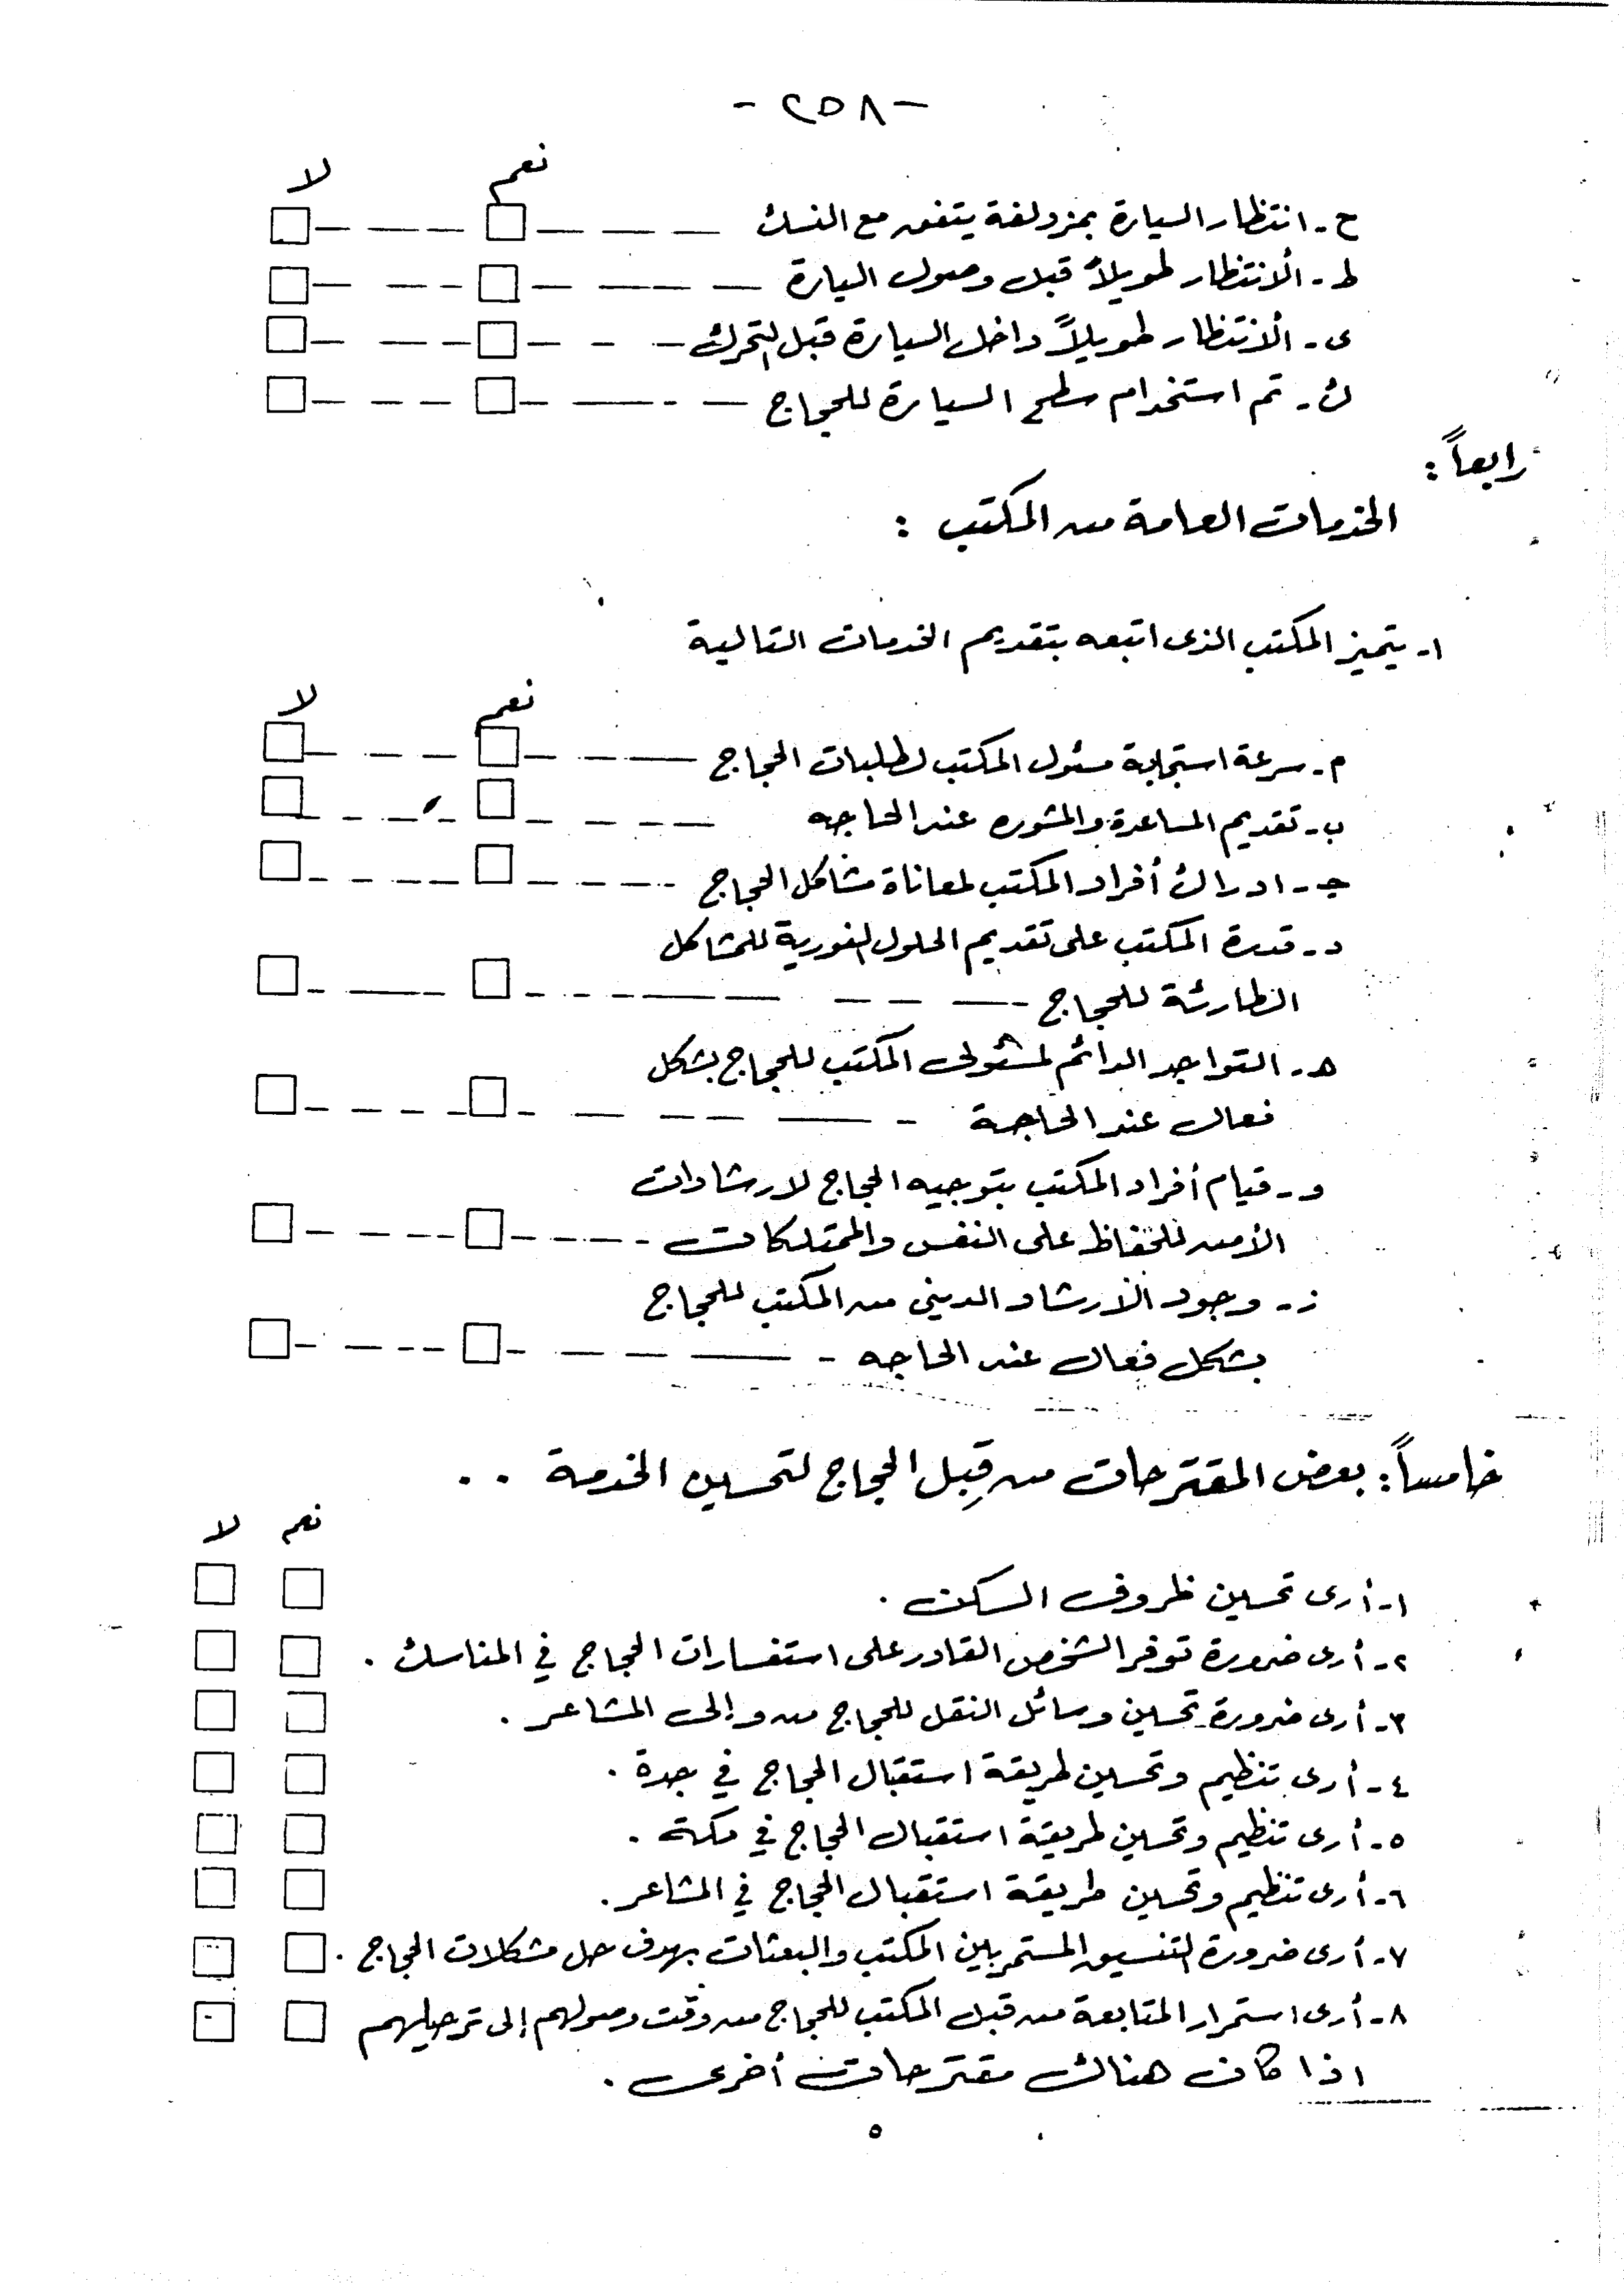 - ٢٥٨ -
نعم لا
ح - انتظار السيارة بمزدلفة يتفق مع النسك ☐ ☐
ط - الانتظار طويلاً قبل وصول السيارة ☐ ☐
ى - الانتظار طويلاً داخل السيارة قبل التحرك ☐ ☐
ك - تم استخدام سطح السيارة للحجاج ☐ ☐
رابعاً :
الخدمات العامة من المكتب :
١- يتميز المكتب الذى اتبعه بتقديم الخدمات التالية
نعم لا
م - سرعة استجابة مسئول المكتب لطلبات الحجاج ☐ ☐
ب - تقديم المساعدة والمشوره عند الحاجه ☐ ☐
جـ - ادراك أفراد المكتب لمعاناة مشاكل الحجاج ☐ ☐
د - قدرة المكتب على تقديم الحلول الفورية للمشاكل
الطارئة للحجاج ☐ ☐
هـ - التواجد الدائم لمسئولى المكتب للحجاج بشكل
فعال عند الحاجة ☐ ☐
و - قيام أفراد المكتب بتوجيه الحجاج لارشادات
الأمن للحفاظ على النفس والممتلكات ☐ ☐
ز - وجود الارشاد الدينى من المكتب للحجاج
بشكل فعال عند الحاجه ☐ ☐
خامساً : بعض المقترحات من قِبل الحجاج لتحسين الخدمة . .
نعم لا
١- أرى تحسين ظروف السكن . ☐ ☐
٢- أرى ضرورة توفر الشخص القادر على استفسارات الحجاج في المناسك . ☐ ☐
٣- أرى ضرورة تحسين وسائل النقل للحجاج من وإلى المشاعر . ☐ ☐
٤- أرى تنظيم وتحسين طريقة استقبال الحجاج في جدة . ☐ ☐
٥- أرى تنظيم وتحسين طريقة استقبال الحجاج في مكة . ☐ ☐
٦- أرى تنظيم وتحسين طريقة استقبال الحجاج في المشاعر . ☐ ☐
٧- أرى ضرورة التنسيق المستمر بين المكتب والبعثات بهدف حل مشكلات الحجاج . ☐ ☐
٨- أرى استمرار المتابعة من قبل المكتب للحجاج من وقت وصولهم إلى ترحيلهم ☐ ☐
اذا كان هناك مقترحات أخرى .
٥